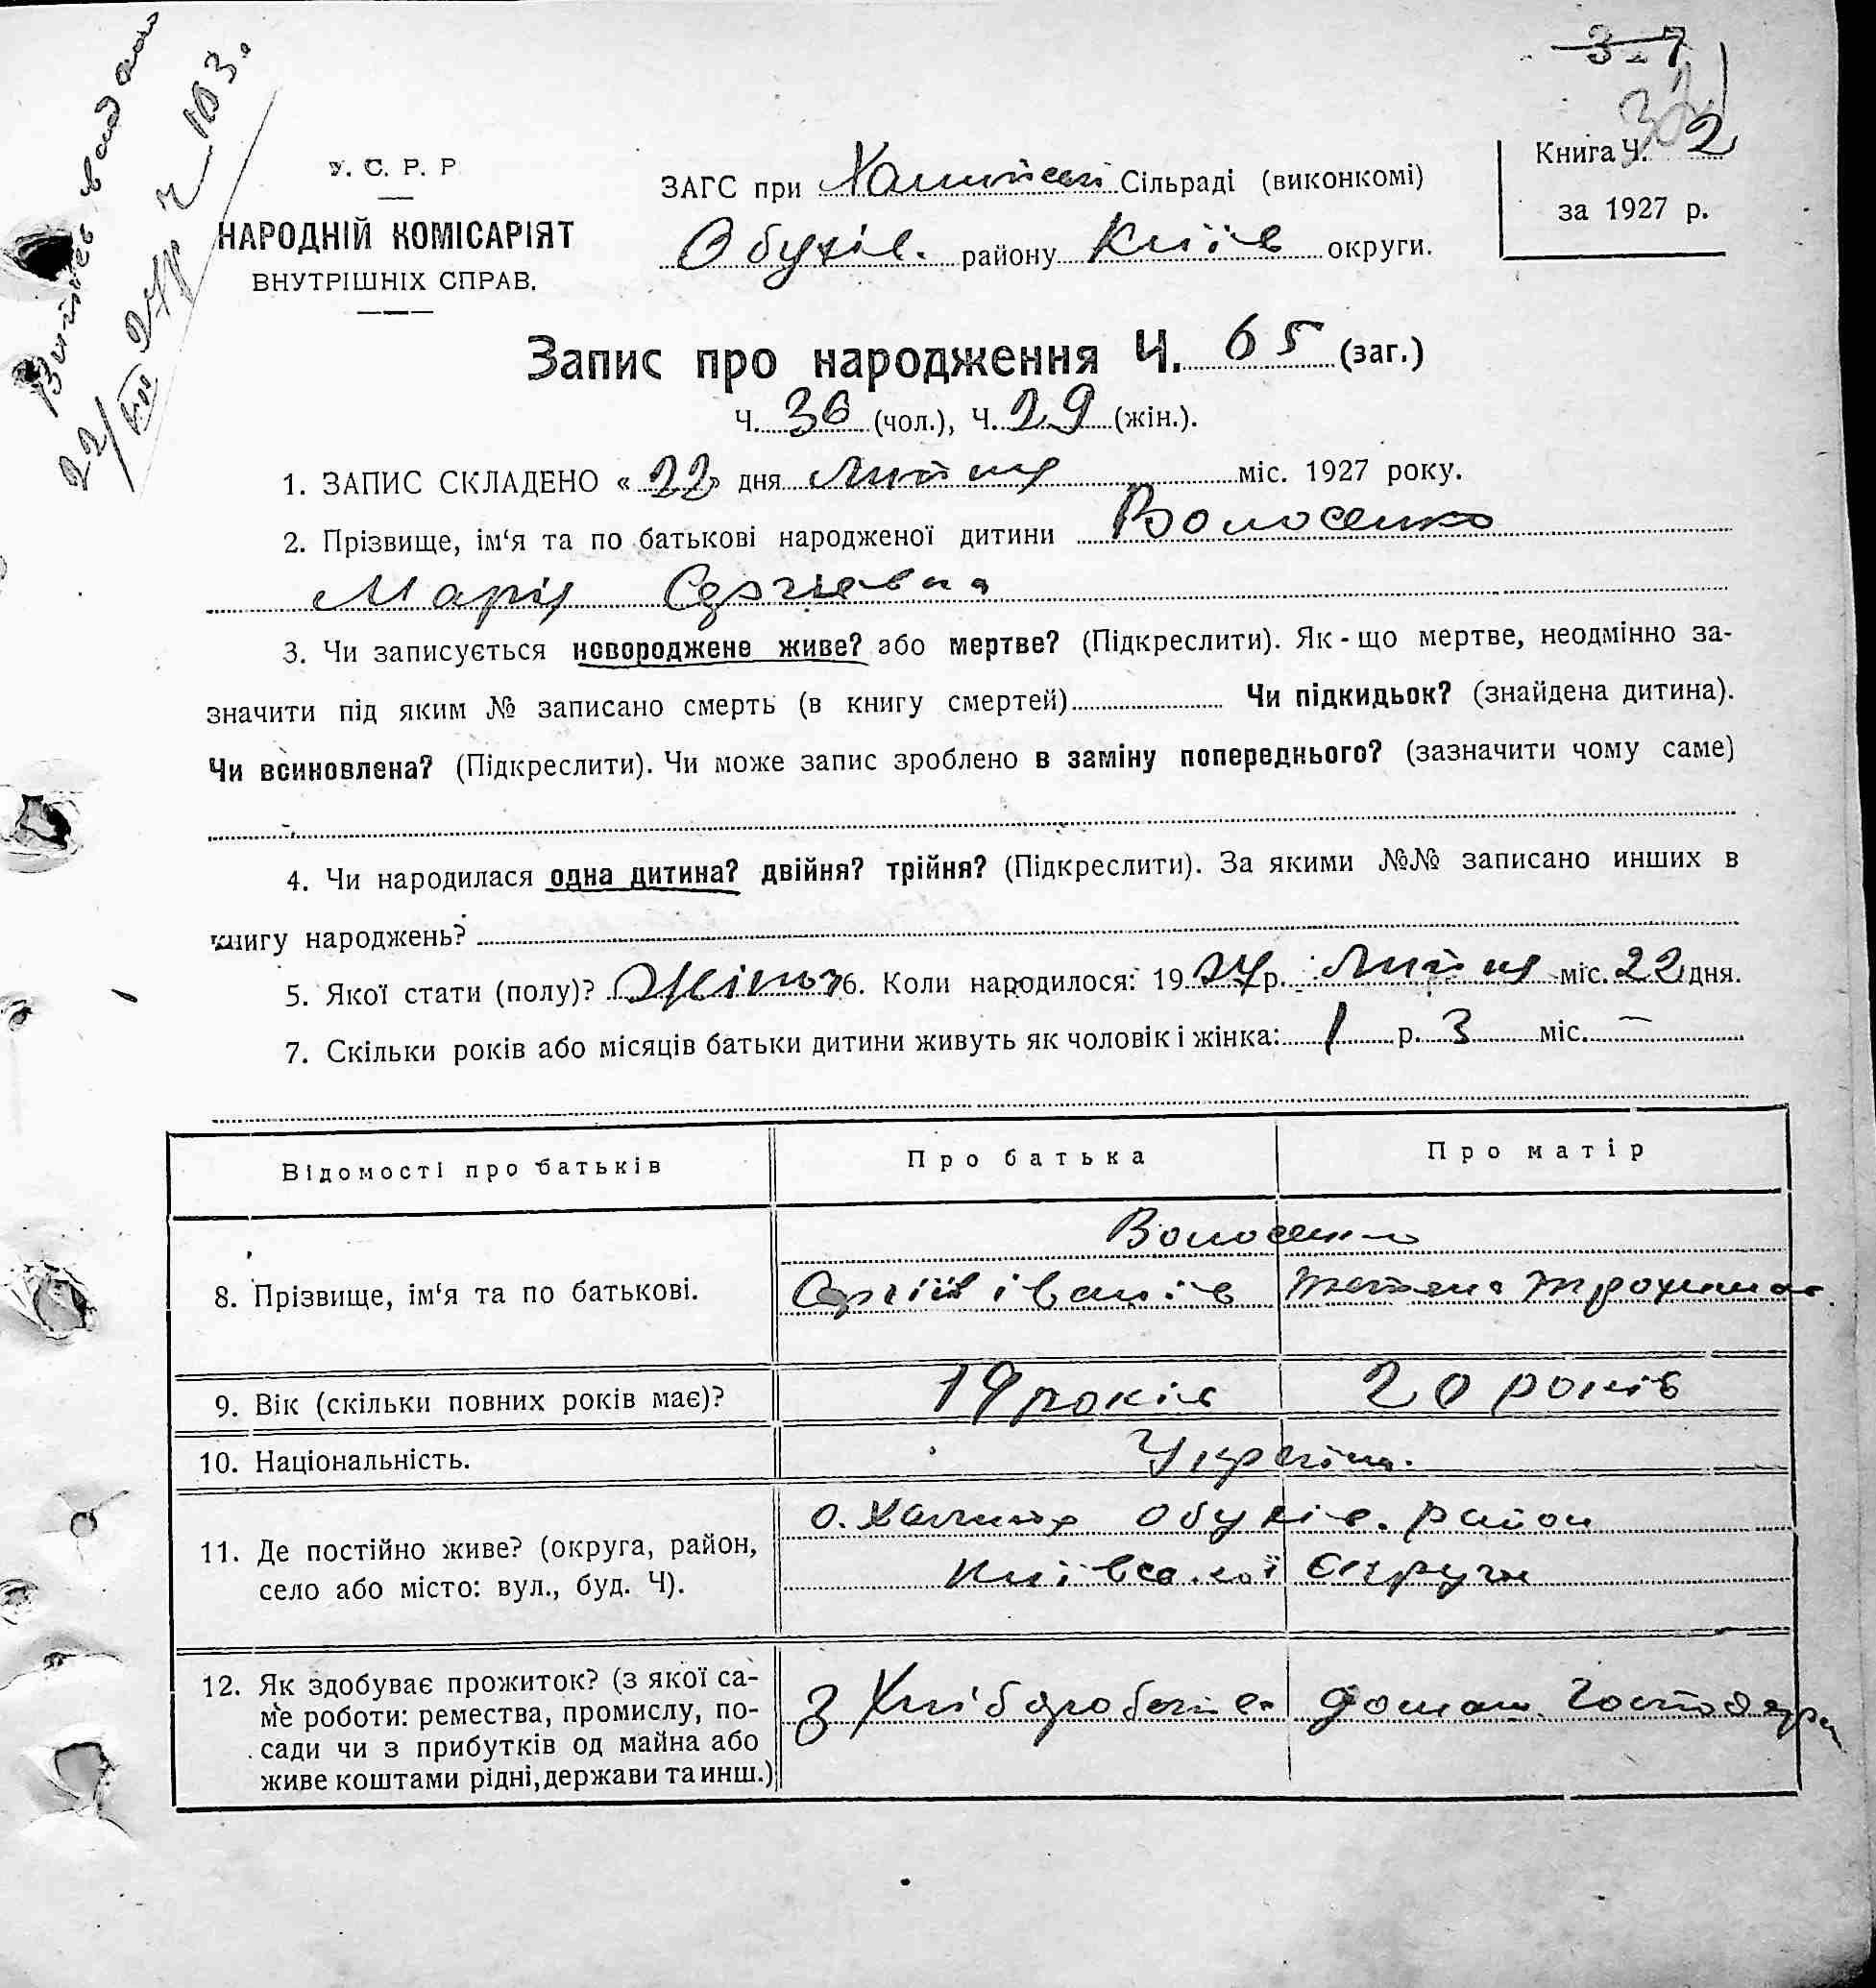 3-7
Витяг видан
22/VII 27 р Ч 103.
У. С. Р. Р
НАРОДНІЙ КОМІСАРІЯТ
ВНУТРІШНІХ СПРАВ.
ЗАГС при Халипській Сільраді (виконкомі)
Обухів. району Київ округи.
Книга Ч. 2
за 1927 р.
Запис про народження Ч. 65 (заг.)
Ч. 36 (чол.), Ч. 29 (жін.).
1. ЗАПИС СКЛАДЕНО « 22 » дня Липня міс. 1927 року.
2. Прізвище, ім‘я та по батькові народженої дитини Волосенко
Марія Сергіевна
3. Чи записується новороджене живе? або мертве? (Підкреслити). Як-що мертве, неодмінно за-
значити під яким № записано смерть (в книгу смертей) Чи підкидьок? (знайдена дитина).
Чи всиновлена? (Підкреслити). Чи може запис зроблено в заміну попереднього? (зазначити чому саме)
4. Чи народилася одна дитина? двійня? трійня? (Підкреслити). За якими №№ записано инших в
книгу народжень?
5. Якої стати (полу)? Жіноч 6. Коли народилося: 1927 р. Липня міс. 22 дня.
7. Скільки років або місяців батьки дитини живуть як чоловік і жінка: 1 р. 3 міс. —
Відомості про батьків Про батька Про матір
Волосенко
8. Прізвище, ім‘я та по батькові. Сергіїв Іванів Тетяна Трохимов.
9. Вік (скільки повних років має)? 19 років 20 років
10. Національність. Україн.
11. Де постійно живе? (округа, район, с. Халипя Обухів. район
село або місто: вул., буд. Ч). Київської Округи
12. Як здобуває прожиток? (з якої са-
ме роботи: ремества, промислу, по- З Хліборобства домаш. Господар
сади чи з прибутків од майна або
живе коштами рідні, держави та инш.)